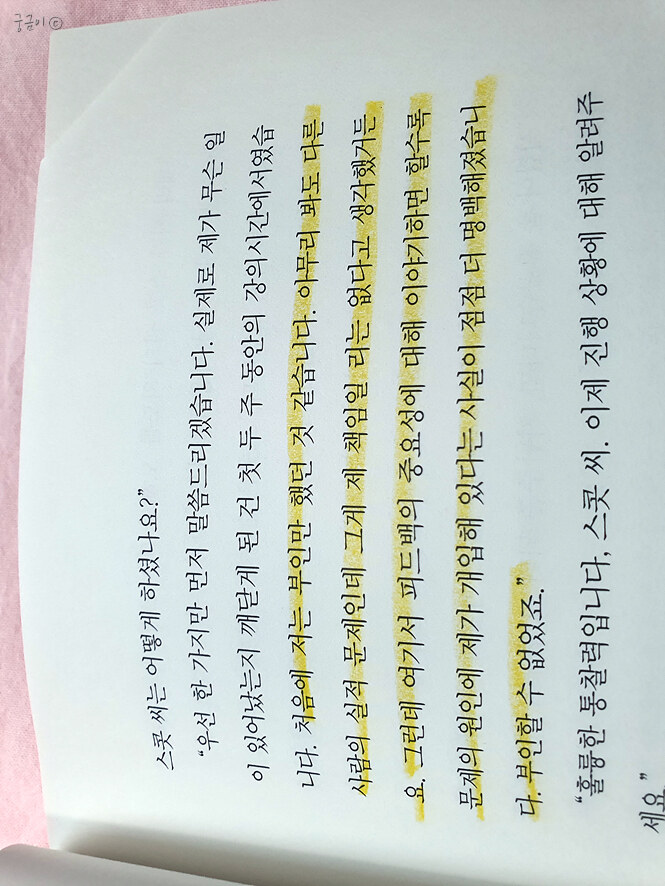 궁금이ⓒ
스콧 씨는 어떻게 하셨나요?”
“우선 한 가지만 먼저 말씀드리겠습니다. 실제로 제가 무슨 일
이 있어났는지 깨닫게 된 건 첫 두 주 동안의 강의시간에서였습
니다. 처음에 저는 부인만 했던 것 같습니다. 아무리 봐도 다른
사람의 실적 문제인데 그게 제 책임일 리는 없다고 생각했거든
요. 그런데 여기서 피드백의 중요성에 대해 이야기하면 할수록
문제의 원인에 제가 개입해 있다는 사실이 점점 더 명백해졌습니
다. 부인할 수 없었죠.”
“훌륭한 통찰력입니다, 스콧 씨. 이제 진행 상황에 대해 알려주
세요.”